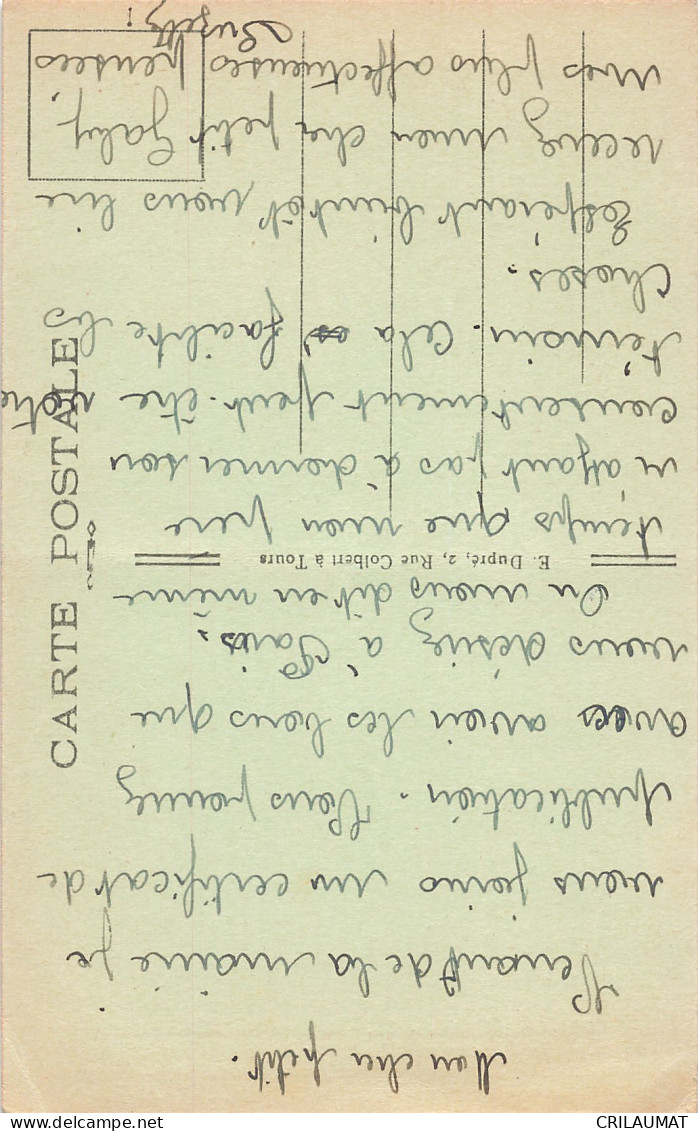 Mon cher petit.
Venant de la mairie je
vous joins un certificat de
publication. Vous pouvez
avec avoir les bons que
vous désirez à Paris.
On nous dit en même
temps que mon père
n'ayant pas à donner son
consentement peut-être votre
témoin. Cela facilite les
choses.
Espérant bientôt vous lire
recevez mon cher petit Gaby,
mes plus affectueuses pensées
Suzette
CARTE POSTALE
E. Dupré, 2, Rue Colbert à Tours
delcampe.net
CRILAUMAT